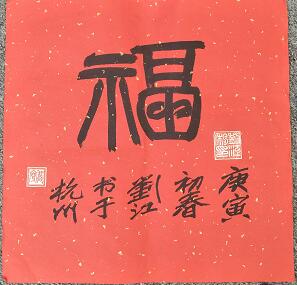 福
庚寅
初春
刘江
书于
杭州